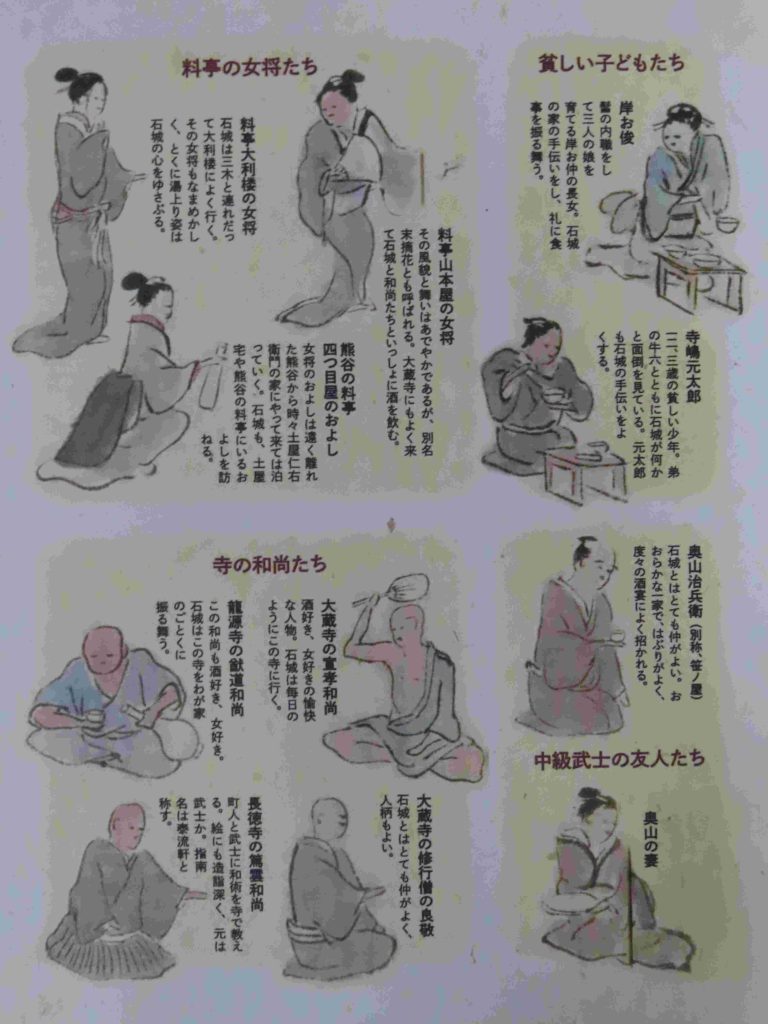 貧しい子どもたち
岸お俊
髪の内職をし
て三人の娘を
育てる岸お仲の長女。石城
の家の手伝いをし、礼に食
事を振る舞う。
寺嶋元太郎
一二、三歳の貧しい少年。弟
の牛六とともに石城が何か
と面倒を見ている。元太郎
も石城の手伝いをよ
くする。
料亭の女将たち
料亭山本屋の女将
その風貌と舞いはあでやかであるが、別名
末摘花とも呼ばれる。大蔵寺にもよく来
て石城と和尚たちといっしょに酒を飲む。
料亭大利楼の女将
石城は三木と連れだっ
て大利楼によく行く。
その女将もなまめかし
く、とくに湯上り姿は
石城の心をゆさぶる。
熊谷の料亭
四つ目屋のおよし
女将のおよしは遠く離れ
た熊谷から時々土屋仁右
衛門の家にやって来ては泊
っていく。石城も、土屋
宅や熊谷の料亭にいるお
よしを訪
ねる。
奥山治兵衛（別称、笹ノ屋）
石城とはとても仲がよい。お
おらかな一家で、はぶりがよく、
度々の酒宴によく招かれる。
中級武士の友人たち
奥山の妻
寺の和尚たち
大蔵寺の宣孝和尚
酒好き、女好きの愉快
な人物。石城は毎日の
ようにこの寺に行く。
龍源寺の猷道和尚
この和尚も酒好き、女好き。
石城はこの寺をわが家
のごとくに
振る舞う。
大蔵寺の修行僧の良敬
石城とはとても仲がよく、
人柄もよい。
長徳寺の篤雲和尚
町人と武士に和術を寺で教え
る。絵にも造詣深く、元は
武士か。指南
名は泰流軒と
称す。